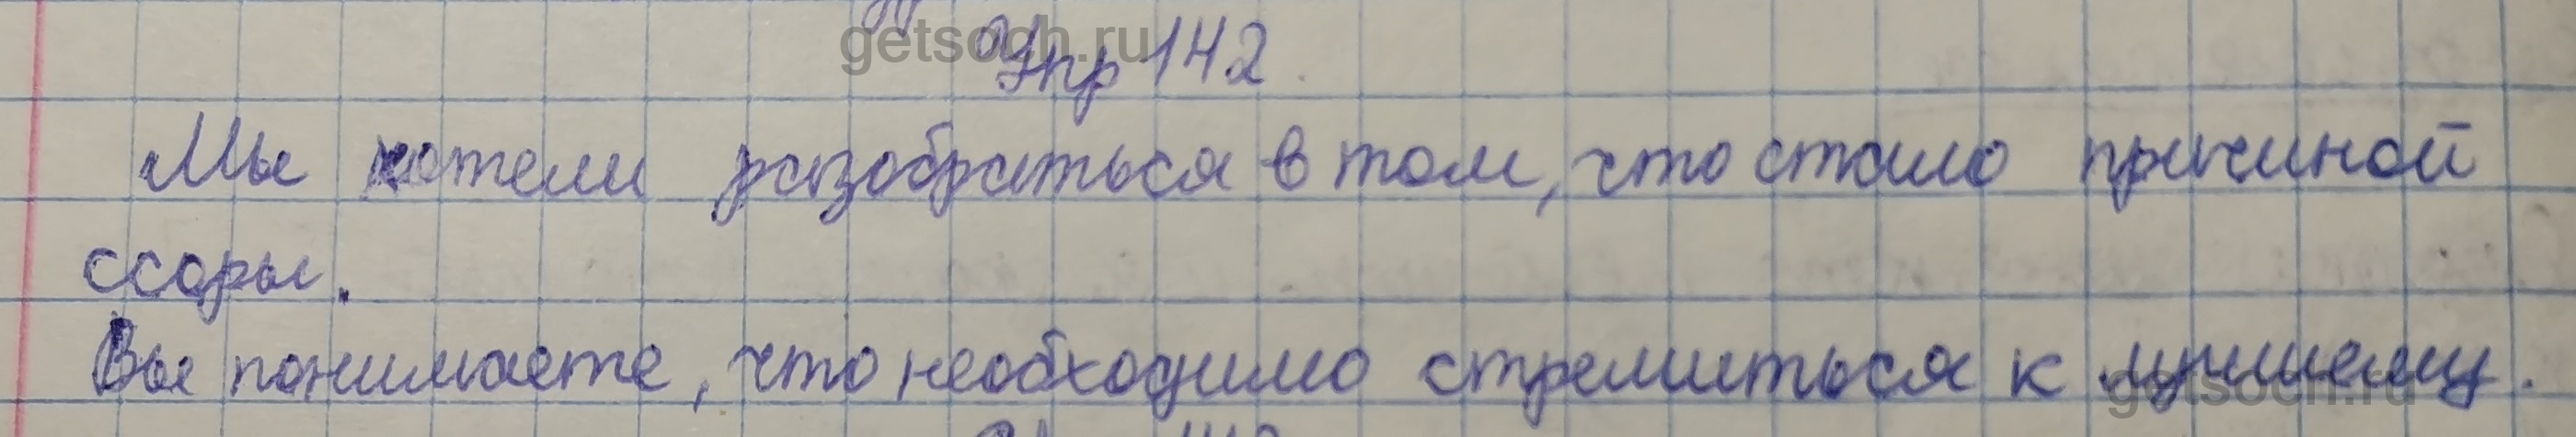 getsoch.ru
Упр 142.
Мы хотели разобраться в том, что стало причиной
ссоры.
Вы понимаете, что необходимо стремиться к лучшему.
getsoch.ru